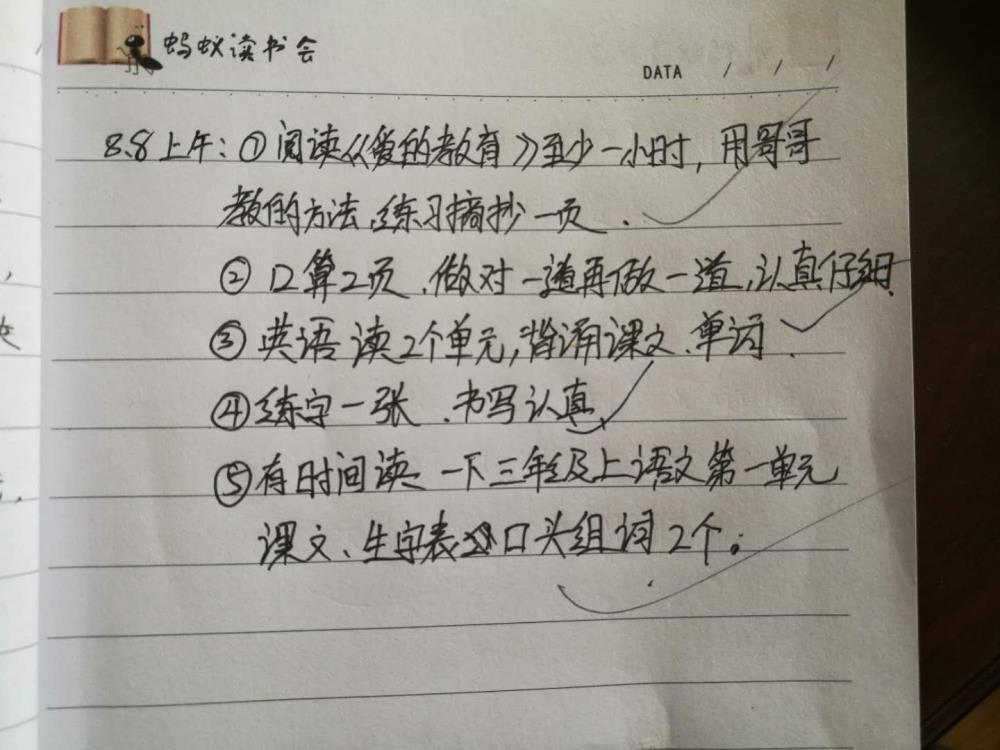 蚂蚁读书会
DATA / / /
8.8上午:①阅读《爱的教育》至少一小时,用哥哥
教的方法,练习摘抄一页.
②口算2页.做对一道再做一道,认真仔细.
③英语读2个单元,背诵课文、单词.
④练字一张.书写认真.
⑤有时间读一下三年级上语文第一单元
课文、生字表口头组词2个。